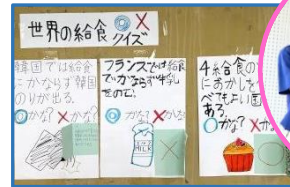 世界の給食 ○×
クイズ
韓国では給食
にかならず韓国
のりが出る。
○かな?×かな?
フランスでは給食
でかならず牛乳
をのむ。
○かな?×かな?
MILK
4 給食の
におかしを
べてもよい国
ある。
○かな?×か